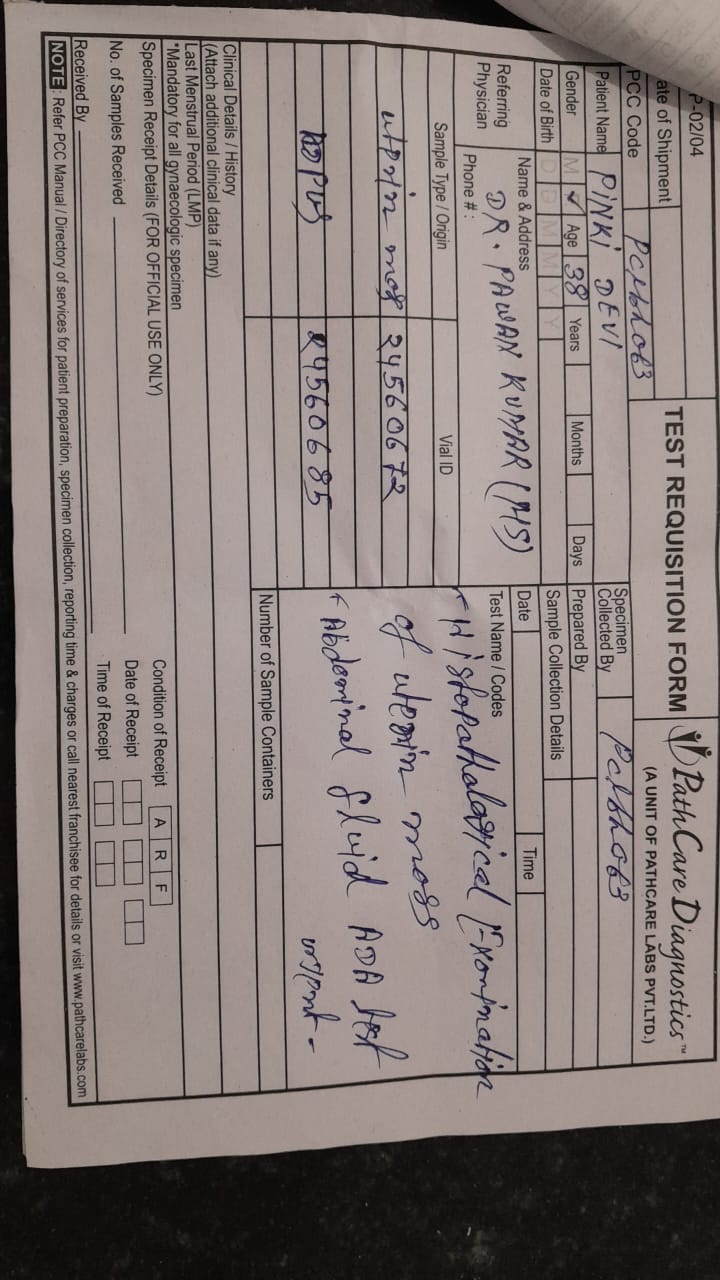 P-02/04
TEST REQUISITION FORM
PathCare Diagnostics™
(A UNIT OF PATHCARE LABS PVT.LTD.)
ate of Shipment
PCC Code
Patient Name PINKI DEVI
Gender M ✓ Age 38 Years Months Days
Date of Birth D D M M Y Y
Referring Physician
Name & Address
DR. PAWAN KUMAR (MS)
Phone #:
Specimen Collected By
Prepared By
Sample Collection Details
Date Time
Sample Type / Origin Vial ID
Test Name / Codes
uterin mas 24560672
24560685
Histopathological Examination
of uterin mass
Abdominal fluid ADA test
urgent -
Number of Sample Containers
Clinical Details / History
(Attach additional clinical data if any)
Last Menstrual Period (LMP)
*Mandatory for all gynaecologic specimen
Specimen Receipt Details (FOR OFFICIAL USE ONLY)
Condition of Receipt A R F
No. of Samples Received
Date of Receipt
Received By
Time of Receipt
NOTE : Refer PCC Manual / Directory of services for patient preparation, specimen collection, reporting time & charges or call nearest franchisee for details or visit www.pathcarelabs.com